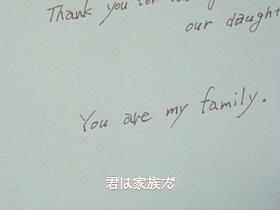 Thank you for
our daught
You are my family.
君は家族だ